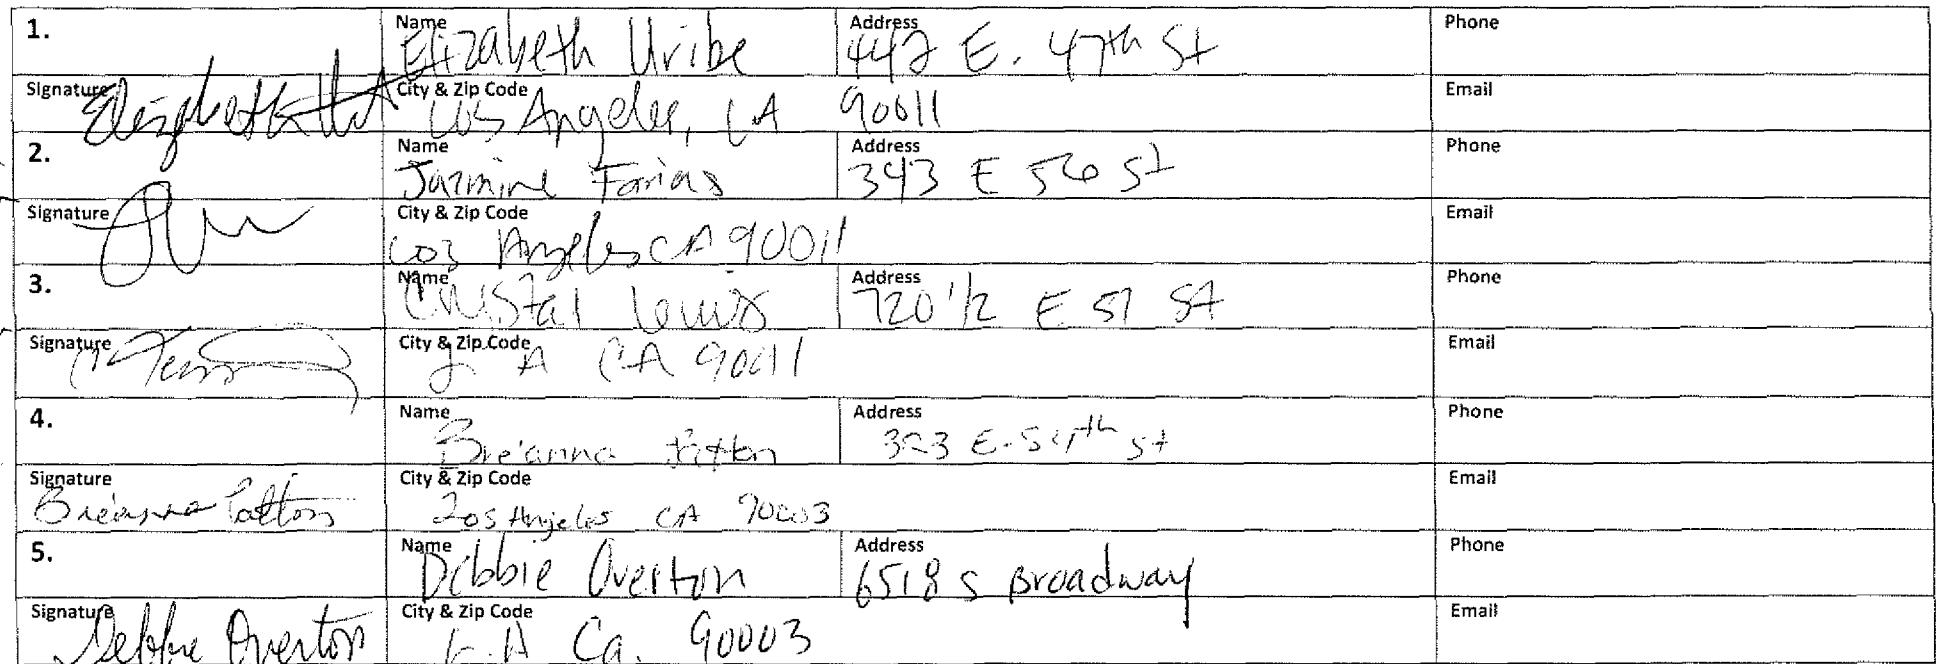 1. Name Elizabeth Uribe Address 442 E. 47th St Phone
Signature City & Zip Code Los Angeles, CA 90011 Email
2. Name Jazmine Farias Address 343 E 56 St Phone
Signature City & Zip Code Los Angeles CA 90011 Email
3. Name Cristal Lewis Address 720 1/2 E 51 St Phone
Signature City & Zip Code L A CA 90011 Email
4. Name Bre'anna Patton Address 323 E. 54th St Phone
Signature Breanna Patton City & Zip Code Los Angeles CA 90003 Email
5. Name Debbie Overton Address 6518 S Broadway Phone
Signature Debbie Overton City & Zip Code L.A Ca. 90003 Email